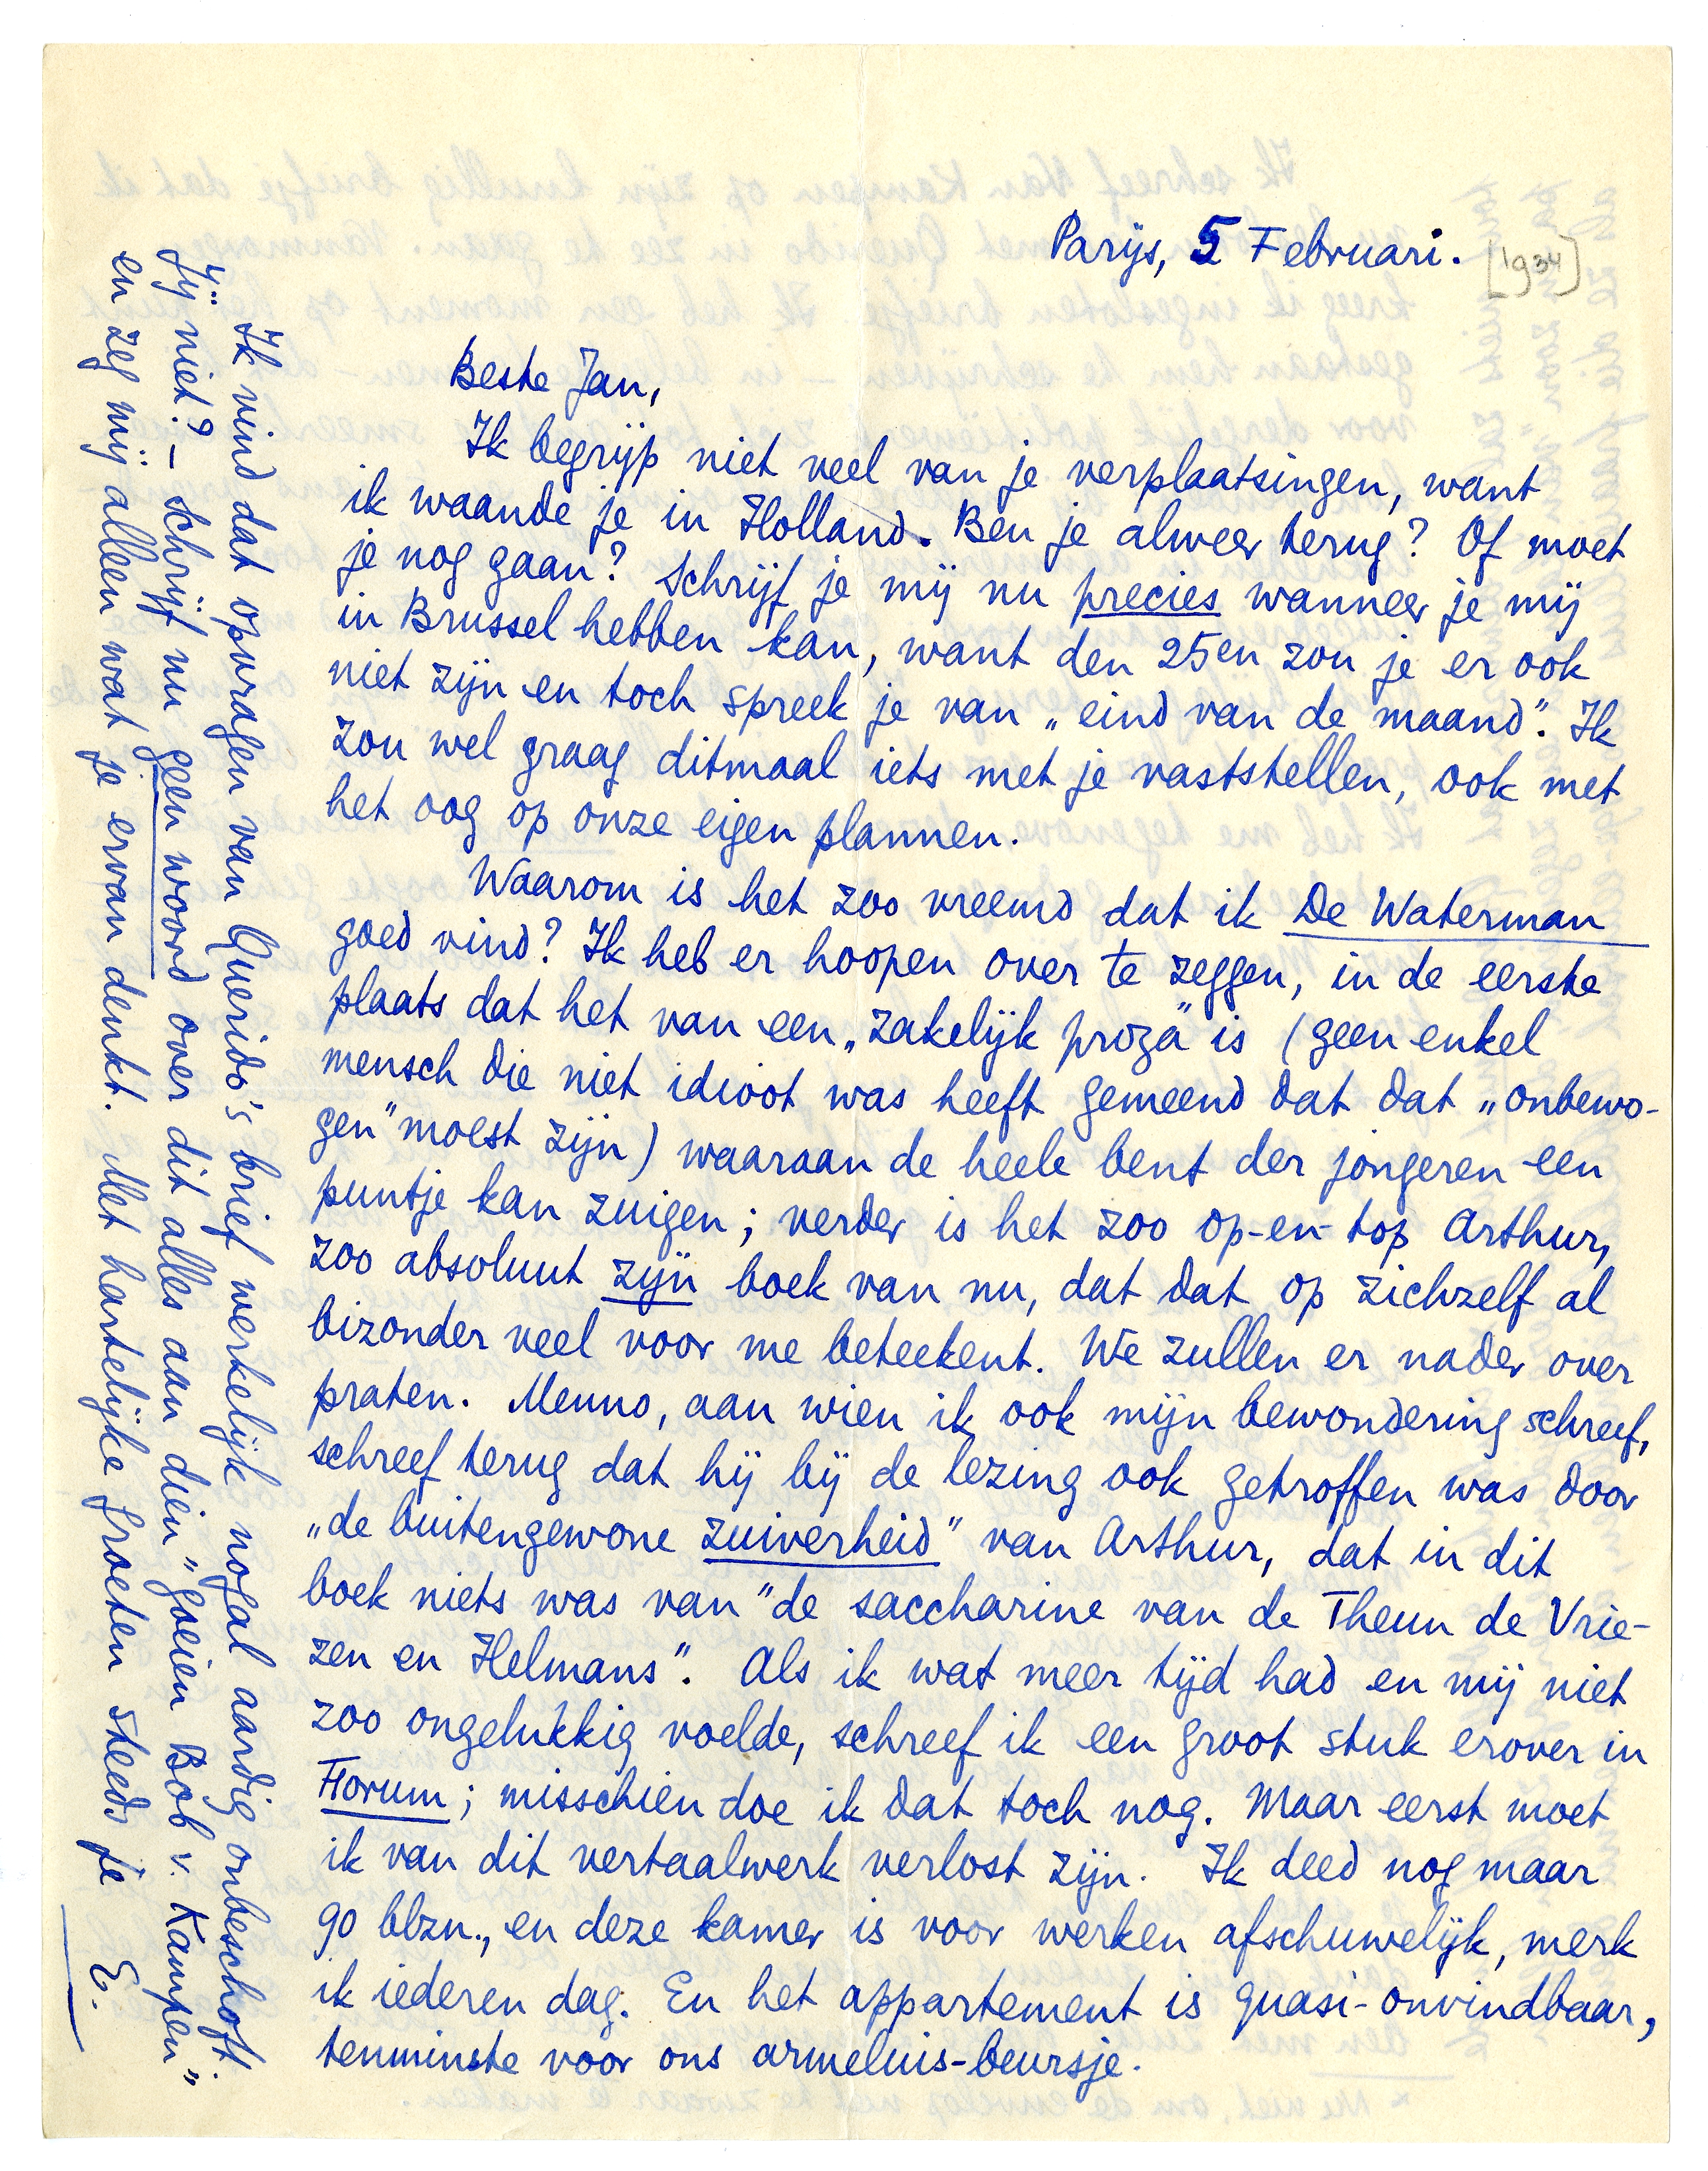 Parijs, 5 Februari. [1934]
Beste Jan,
Ik begrijp niet veel van je verplaatsingen, want
ik waande je in Holland. Ben je alweer terug? Of moet
je nog gaan? Schrijf je mij nu precies wanneer je mij
in Brussel hebben kan, want den 25en zou je er ook
niet zijn en toch spreek je van „eind van de maand". Ik
zou wel graag ditmaal iets met je vaststellen, ook met
het oog op onze eigen plannen.
Waarom is het zoo vreemd dat ik De Waterman
goed vind? Ik heb er hoopen over te zeggen, in de eerste
plaats dat het van een „zakelijk proza" is (geen enkel
mensch die niet idioot was heeft gemeend dat dat „onbewo-
gen" moest zijn) waaraan de heele bent der jongeren een
puntje kan zuigen; verder is het zoo op-en-top Arthur,
zoo absoluut zijn boek van nu, dat dat op zichzelf al
bizonder veel voor me beteekent. We zullen er nader over
praten. Menno, aan wien ik ook mijn bewondering schreef,
schreef terug dat hij bij de lezing ook getroffen was door
„de buitengewone zuiverheid" van Arthur, dat in dit
boek niets was van "de saccharine van de Theun de Vrie-
zen en Helmans". Als ik wat meer tijd had en mij niet
zoo ongelukkig voelde, schreef ik een groot stuk erover in
Forum; misschien doe ik dat toch nog. Maar eerst moet
ik van dit vertaalwerk verlost zijn. Ik deed nog maar
90 blzn., en deze kamer is voor werken afschuwelijk, merk
ik iederen dag. En het appartement is quasi-onvindbaar,
tenminste voor ons armeluis-beursje.
Ik vind dat opvragen van Querido's brief werkelijk nogal aardig onbeschoft.
Jij niet? – Schrijf nu geen woord over dit alles aan dien "goeien Bob v. Kampen"
en zeg mij alleen wat je ervan denkt. Met hartelijke groeten steeds je
E.